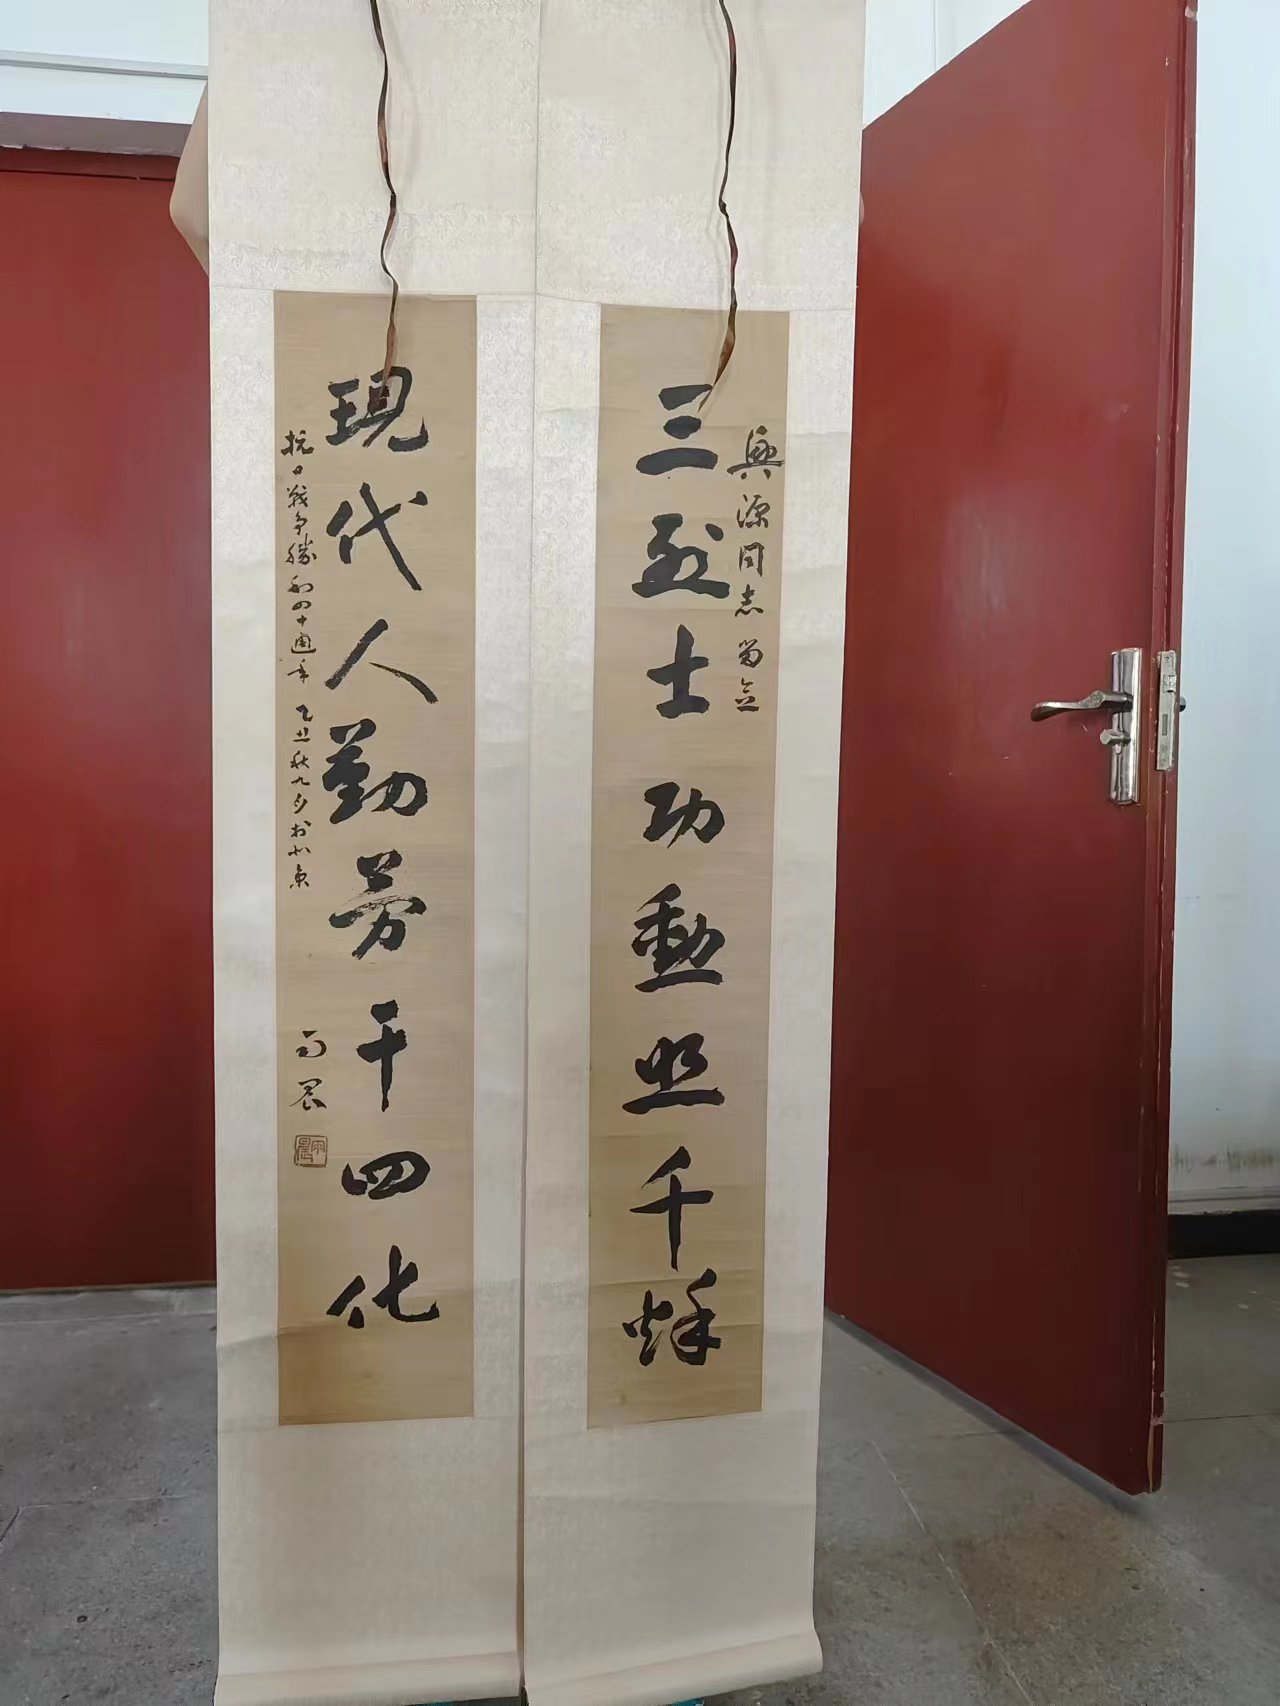 興源同志留念
三烈士功勳照千秋
現代人勤勞干四化
抗日戰争勝利四十週年 乙丑秋九月於北京
雨晨
雨晨